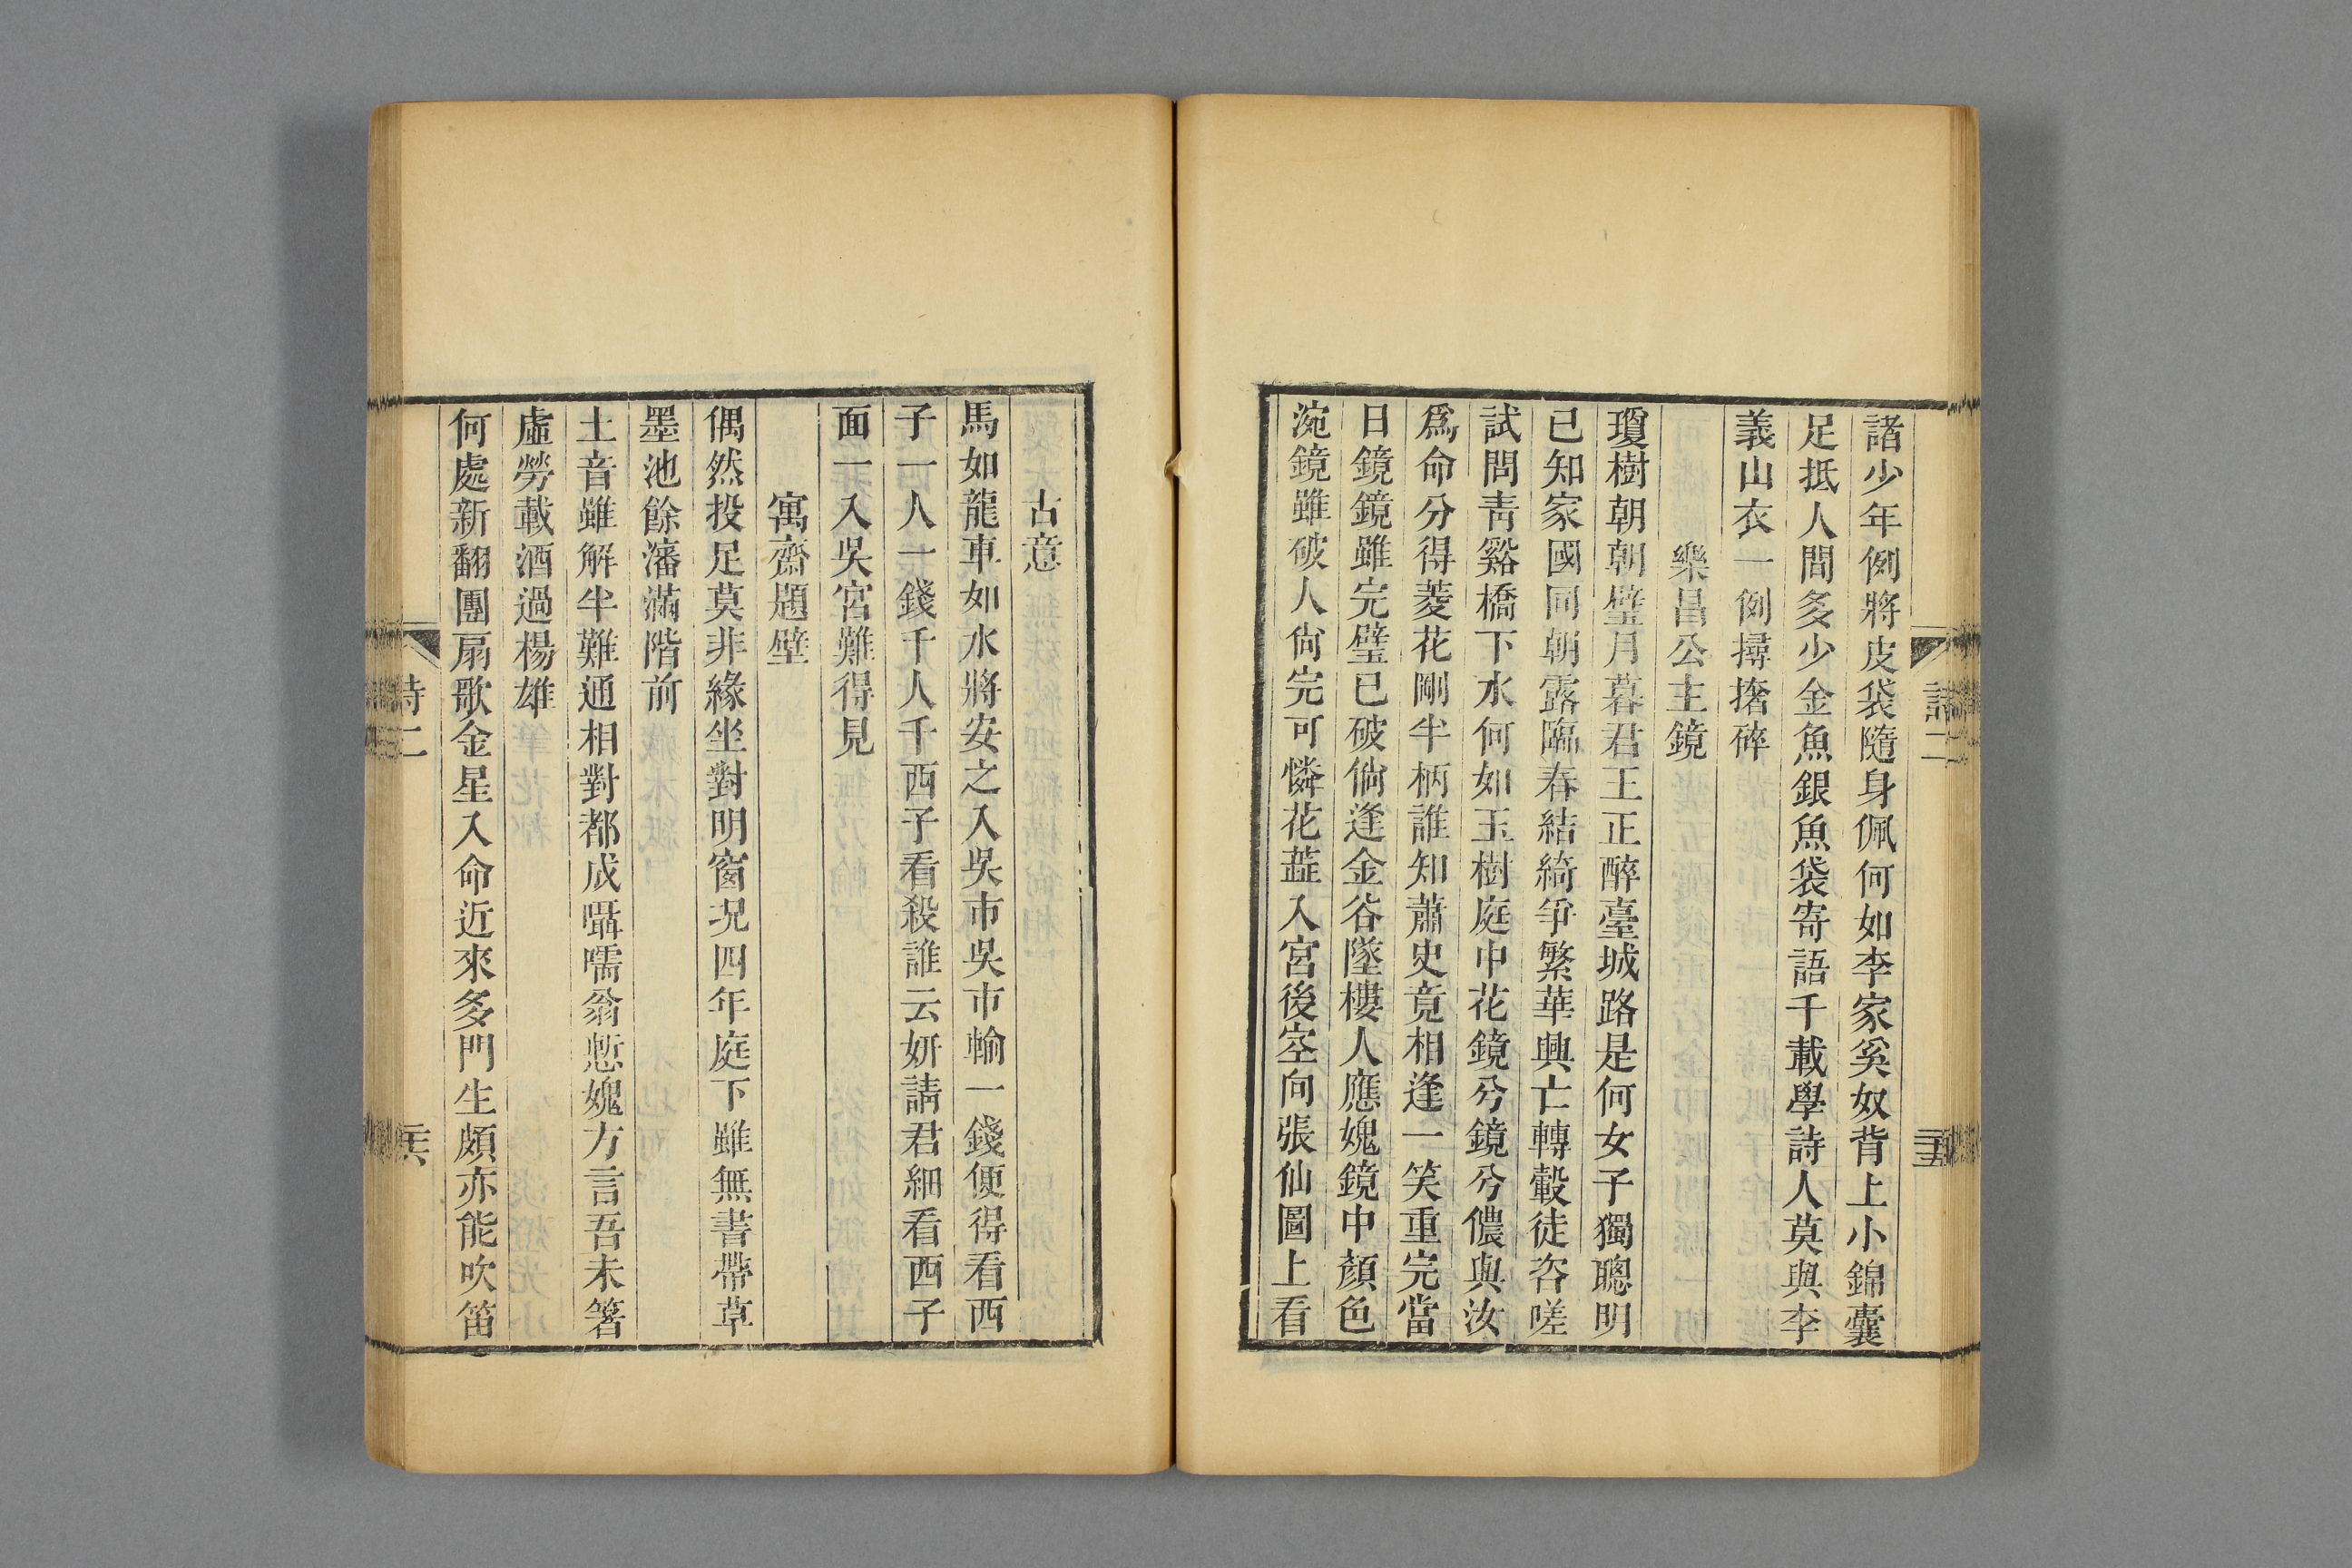 詩二
二十五
諸少年例將皮袋隨身佩何如李家奚奴背上小錦囊
足抵人間多少金魚銀魚袋寄語千載學詩人莫與李
義山衣一例撏撦碎
樂昌公主鏡
瓊樹朝朝璧月暮君王正醉臺城路是何女子獨聰明
已知家國同朝露臨春結綺爭繁華興亡轉轂徒咨嗟
試問靑谿橋下水何如玉樹庭中花鏡兮鏡兮儂與汝
爲命分得菱花剛半柄誰知蕭史竟相逢一笑重完當
日鏡鏡雖完璧已破倘逢金谷墜樓人應媿鏡中顏色
涴鏡雖破人尙完可憐花蕋入宮後空向張仙圖上看
古意
馬如龍車如水將安之入吳市吳市輸一錢便得看西
子一人一錢千人千西子看殺誰云妍請君細看西子
面一入吳宮難得見
寓齋題壁
偶然投足莫非緣坐對明窗況四年庭下雖無書帶草
墨池餘瀋滿階前
土音雖解半難通相對都成囁嚅翁慙媿方言吾未箸
虛勞載酒過楊雄
何處新翻團扇歌金星入命近來多門生頗亦能吹笛
詩二
二十六